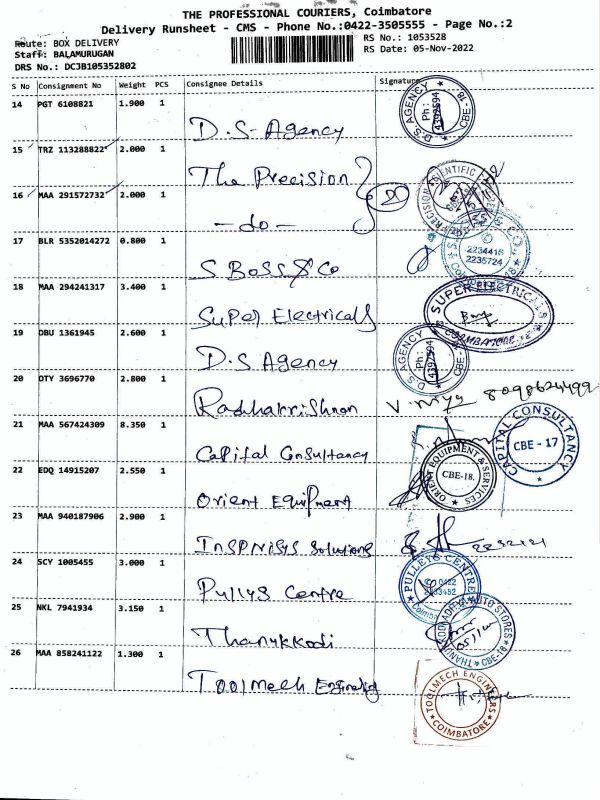 THE PROFESSIONAL COURIERS, Coimbatore
Delivery Runsheet - CMS - Phone No.:0422-3505555 - Page No.:2
Route: BOX DELIVERY
Staff: BALAMURUGAN
DRS No.: DCJB105352802
RS No.: 1053528
RS Date: 05-Nov-2022
S No Consignment No Weight PCS Consignee Details Signature
14 PGT 6108821 1.900 1
D.S. Agency
D.S. AGENCY Ph: 4392594 CBE-18
15 TRZ 113288822 2.000 1
The Precision
16 MAA 291572732 2.000 1
- do -
17 BLR 5352014272 0.800 1
S Boss & Co
2234416
2235724
18 MAA 294241317 3.400 1
Super Electricals
SUPER ELECTRICALS COIMBATORE
19 DBU 1361945 2.600 1
D.S. Agency
D.S. AGENCY Ph: 4392594 CBE-18
20 DTY 3696770 2.800 1
Radhakrishnan
21 MAA 567424309 8.350 1
Capital Consultancy
CAPITAL CONSULTANCY CBE - 17
22 EDQ 14915207 2.550 1
Orient Equipment
ORIENT EQUIPMENT & SERVICES CBE-18.
23 MAA 940187906 2.900 1
Inspirisys Solutions
24 SCY 1005455 3.000 1
Pullys Centre
PULLEYS CENTRE
25 NKL 7941934 3.150 1
Thanukkodi
AUTO STORES CBE-18
26 MAA 858241122 1.300 1
Toolmech Engineering
TOOLMECH ENGINEERS COIMBATORE